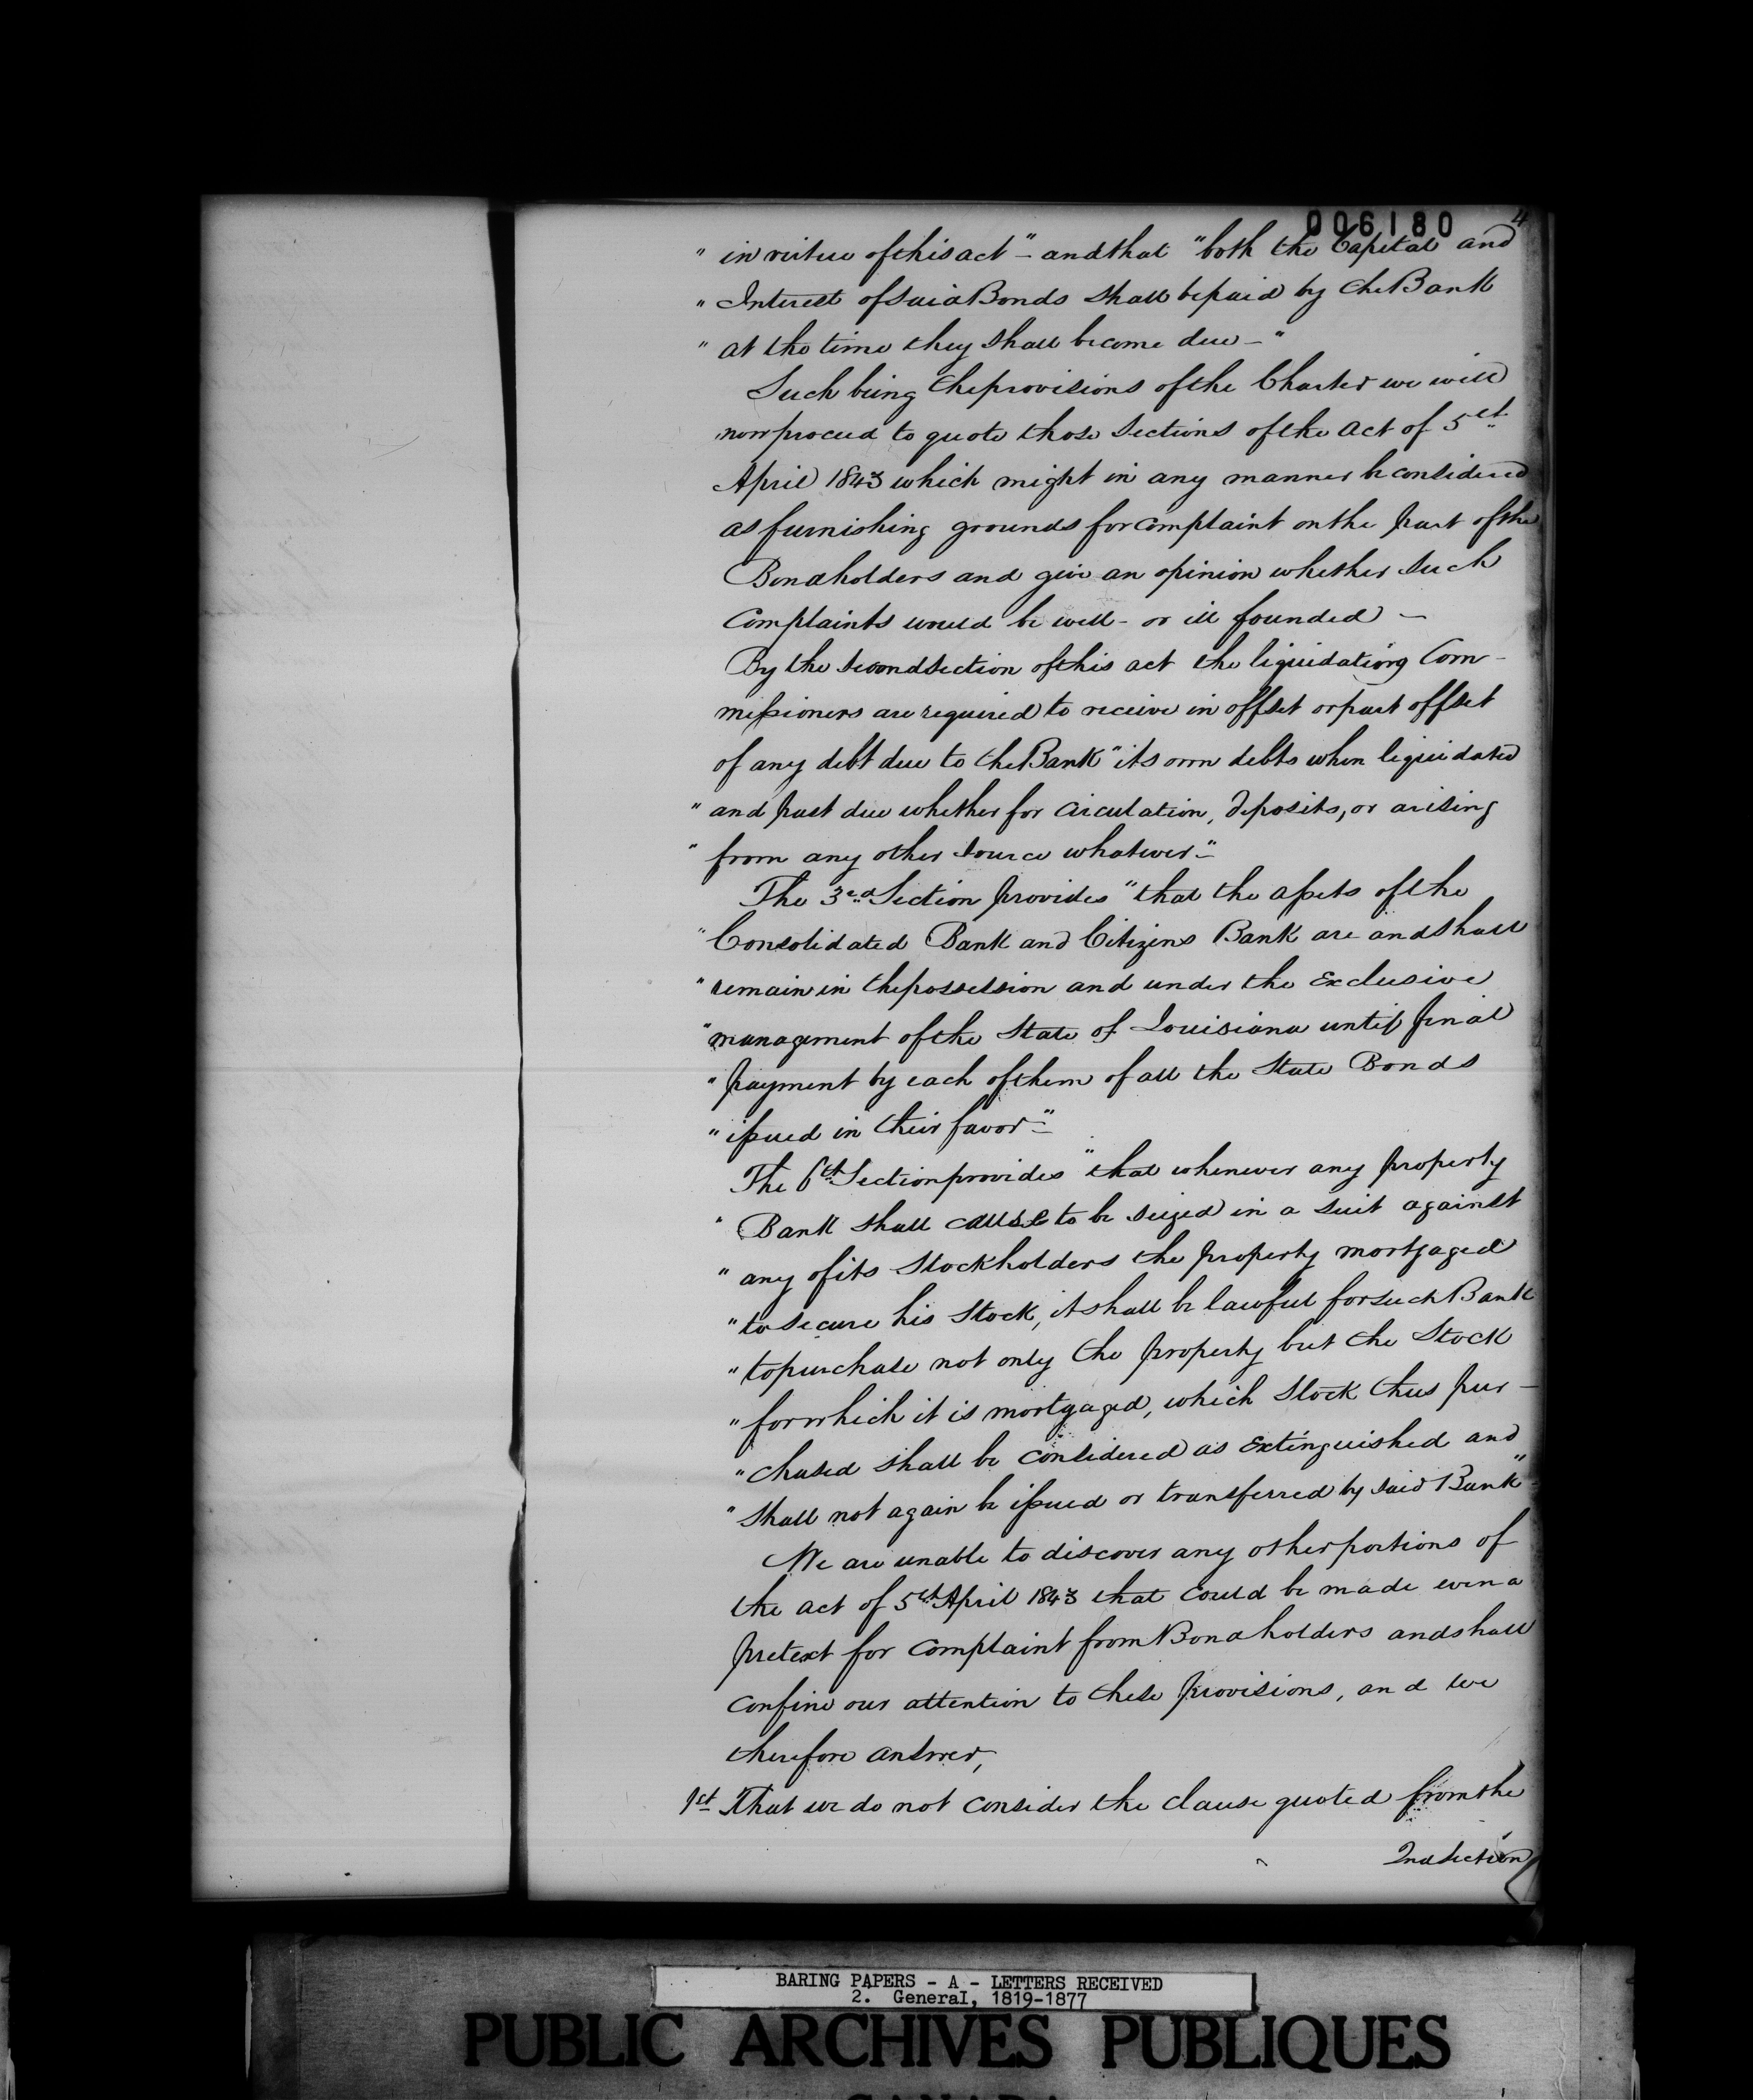 006180
4
" in virtue of this act" – and that "both the Capital and
" Interest of said Bonds shall be paid by the Bank
" at the time they shall become due – "
Such being the provisions of the Charter we will
now proceed to quote those Sections of the Act of 5th
April 1843 which might in any manner be considered
as furnishing grounds for complaint on the part of the
Bondholders and give an opinion whether such
Complaints would be well – or ill founded –
By the second Section of this act the liquidating Com-
missioners are required to receive in offset or part offset
of any debt due to the Bank "its own debts when liquidated
" and past due whether for circulation, deposits, or arising
" from any other source whatever" –
The 3rd Section provides "that the assets of the
" Consolidated Bank and Citizens Bank are and shall
" remain in the possession and under the exclusive
" management of the State of Louisiana until final
" payment by each of them of all the State Bonds
" issued in their favor" –
The 6th Section provides "that whenever any property
" Bank shall cause to be seized in a suit against
" any of its Stockholders the property mortgaged
" to secure his Stock, it shall be lawful for such Bank
" to purchase not only the property but the Stock
" for which it is mortgaged, which Stock thus pur-
" chased shall be considered as extinguished and
" shall not again be issued or transferred by said Bank" –
We are unable to discover any other portions of
the act of 5th April 1843 that could be made even a
pretext for complaint from Bondholders and shall
confine our attention to these provisions, and we
therefore answer,
1st That we do not consider the clause quoted from the
2nd Section
BARING PAPERS - A - LETTERS RECEIVED
2. General, 1819-1877
PUBLIC ARCHIVES PUBLIQUES
CANADA